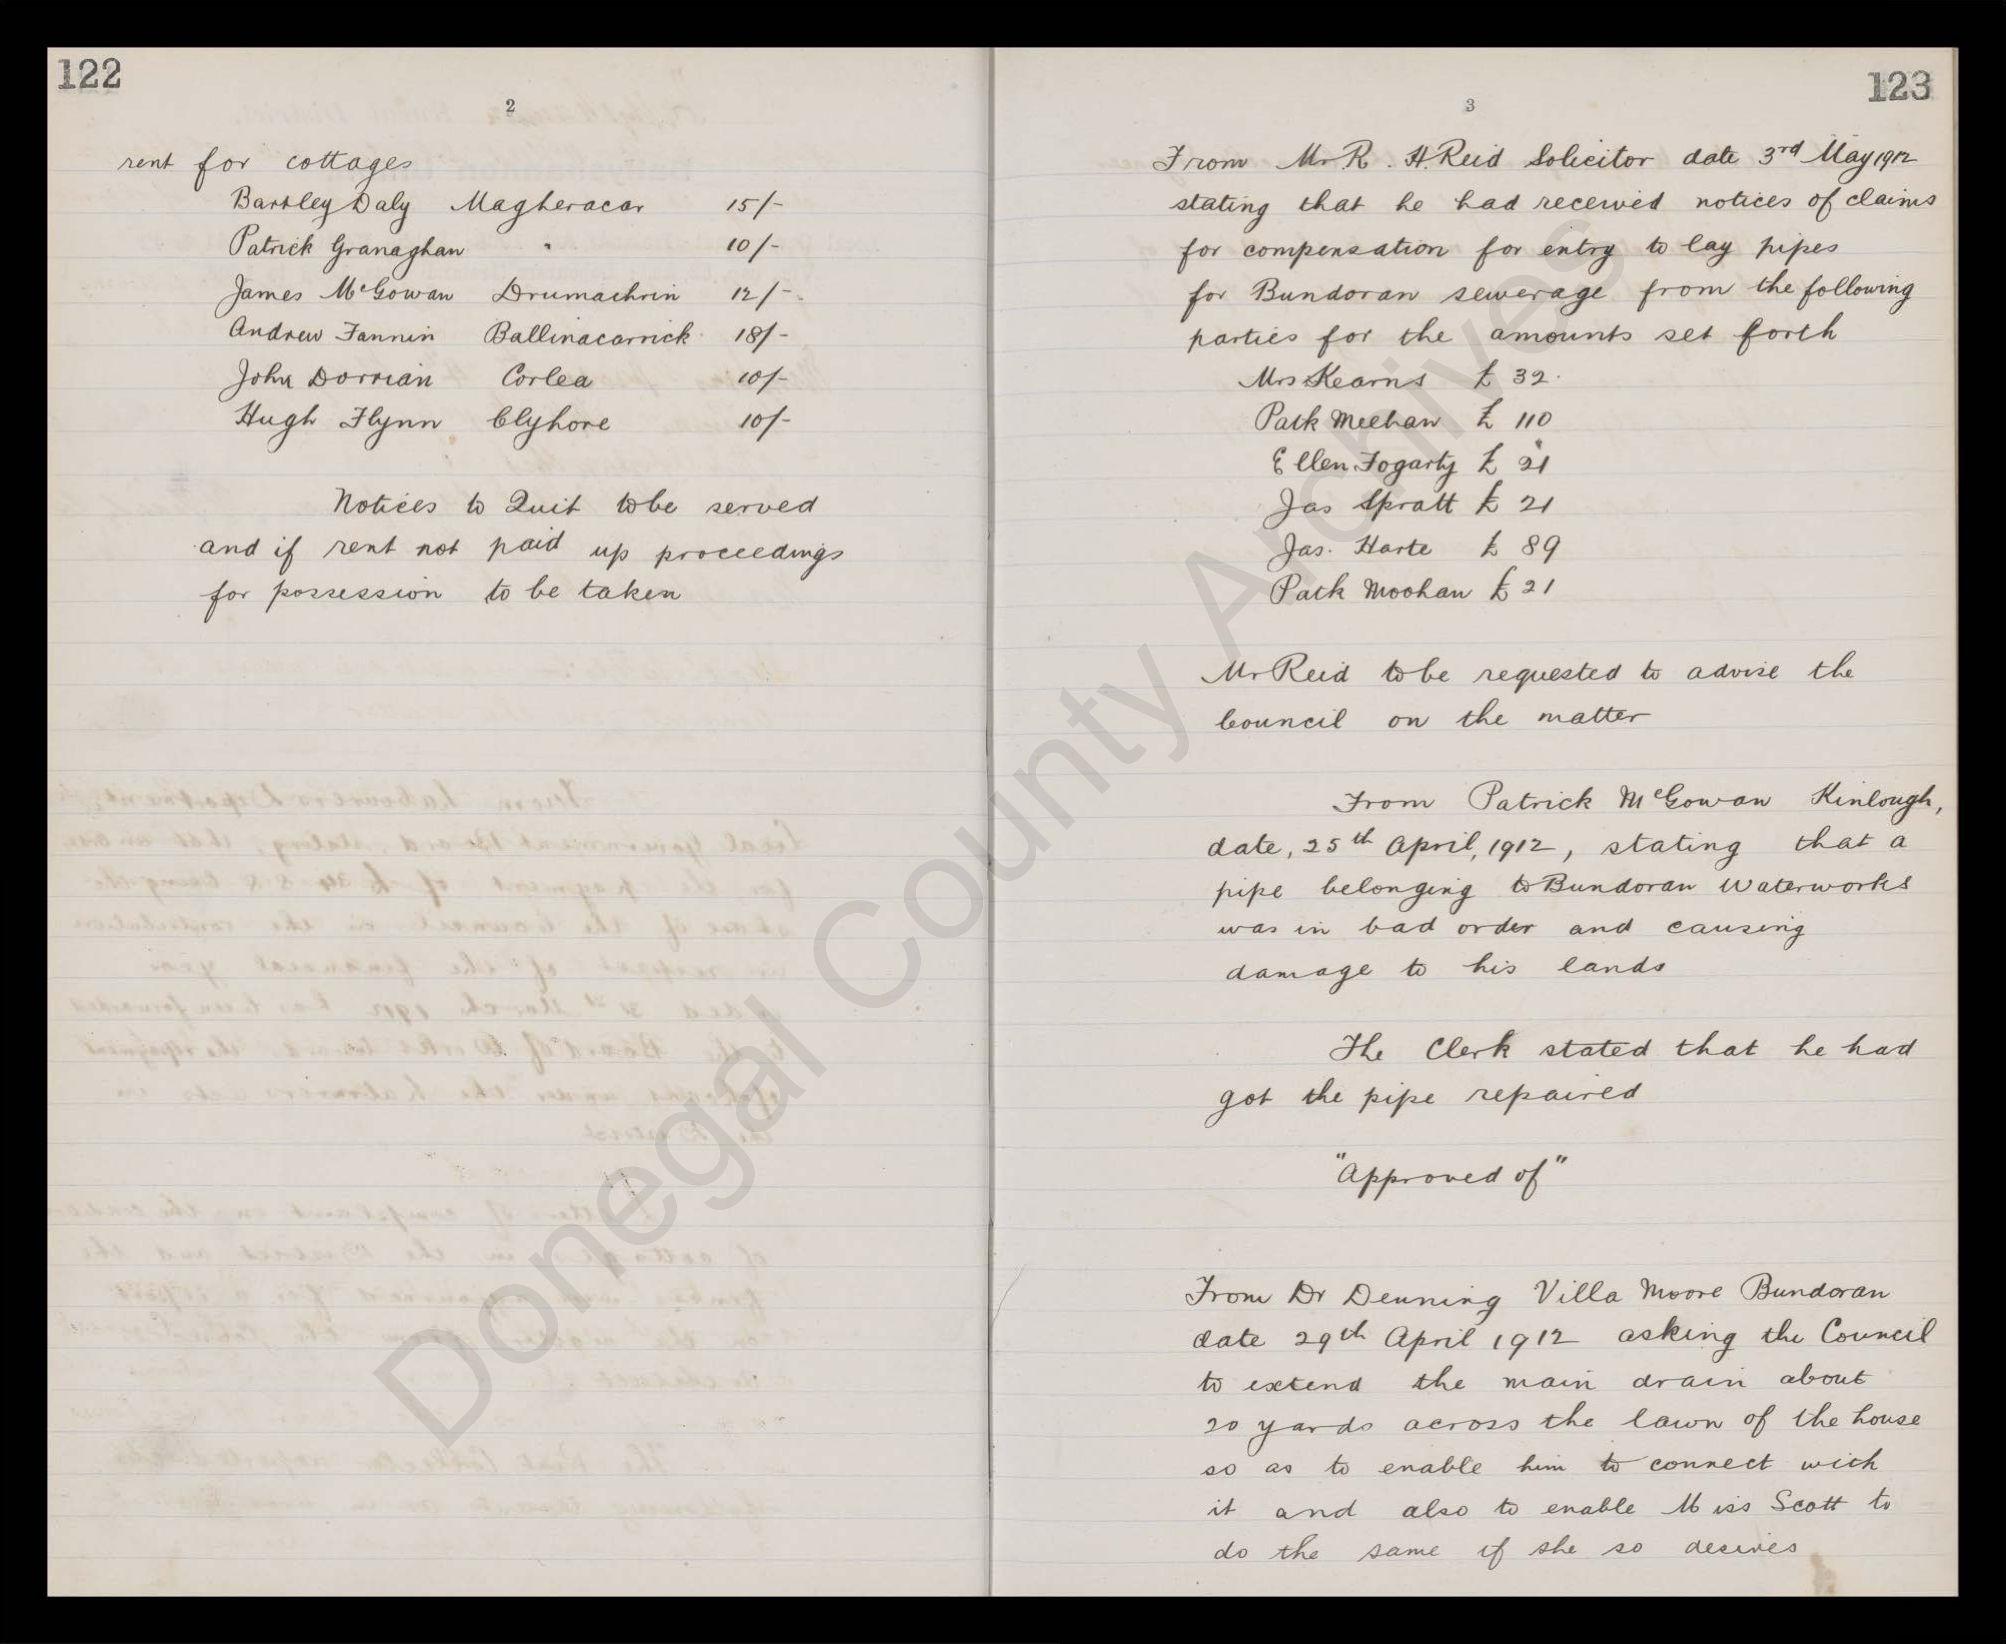 122
2
rent for cottages
Bartley Daly Magheracar 15/-
Patrick Granaghan " 10/-
James McGowan Drumachrin 12/-
Andrew Fannin Ballinacarrick 18/-
John Dorrian Corlea 10/-
Hugh Flynn Clyhore 10/-
Notices to Quit to be served
and if rent not paid up proceedings
for possession to be taken
123
3
From Mr R. H. Reid Solicitor date 3rd May 1912
stating that he had received notices of claims
for compensation for entry to lay pipes
for Bundoran sewerage from the following
parties for the amounts set forth
Mrs Kearns £ 32
Patk Meehan £ 110
Ellen Fogarty £ 21
Jas Spratt £ 21
Jas. Harte £ 89
Patk Moohan £ 21
Mr Reid to be requested to advise the
Council on the matter
From Patrick McGowan Kinlough,
date, 25th April, 1912, stating that a
pipe belonging to Bundoran Waterworks
was in bad order and causing
damage to his lands
The Clerk stated that he had
got the pipe repaired
"Approved of"
From Dr Denning Villa Moore Bundoran
date 29th April 1912 asking the Council
to extend the main drain about
20 yards across the lawn of the house
so as to enable him to connect with
it and also to enable Miss Scott to
do the same if she so desires
Donegal County Archives